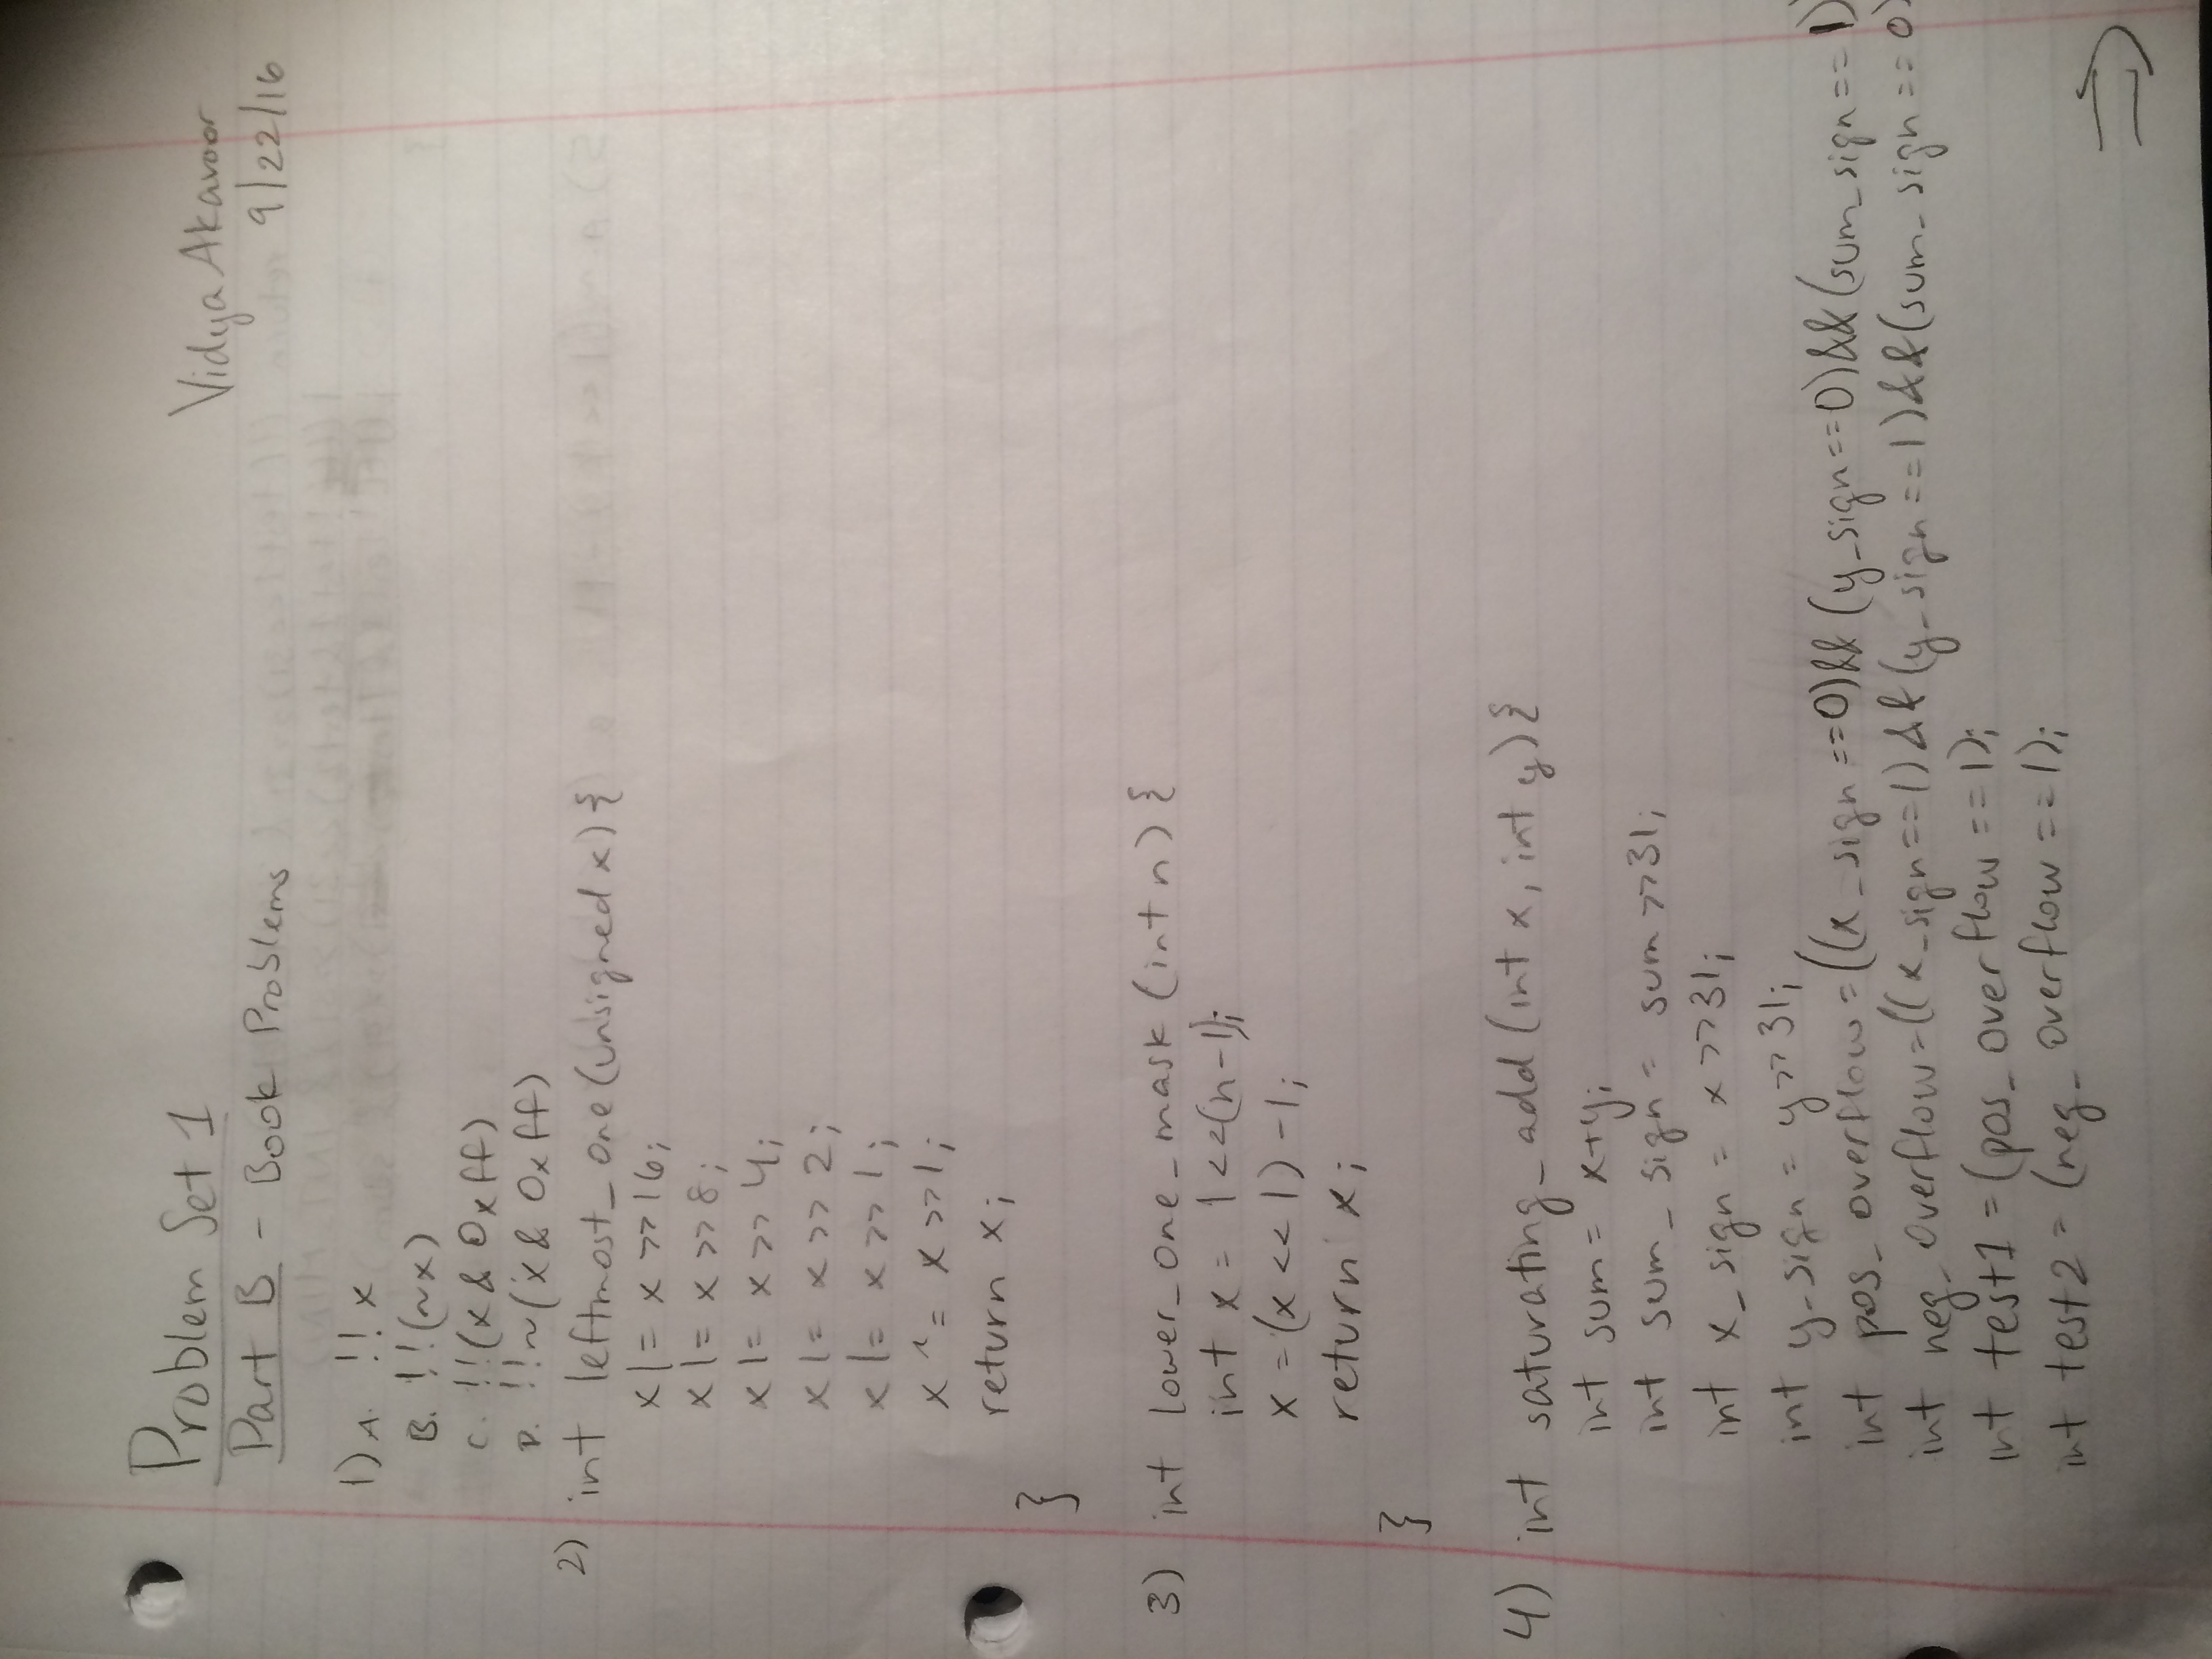 Problem Set 1
Vidya Akavoor
Part B - Book Problems
9/22/16
1) A. !!x
B. !!(~x)
C. !!(x & 0xff)
D. !!~(x & 0xff)
2) int leftmost_one(unsigned x){
x |= x >> 16;
x |= x >> 8;
x |= x >> 4;
x |= x >> 2;
x |= x >> 1;
x ^= x >> 1;
return x;
}
3) int lower_one_mask (int n) {
int x = 1<<(n-1);
x = (x << 1) - 1;
return x;
}
4) int saturating_add (int x, int y) {
int sum = x+y;
int sum_sign = sum >>31;
int x_sign = x >>31;
int y_sign = y >> 31;
int pos_overflow = ((x_sign ==0)&& (y_sign==0)&&(sum_sign == 1)
int neg_overflow = ((x_sign==1) && (y_sign ==1)&&(sum_sign == 0)
int test1 = (pos_overflow ==1);
int test2 = (neg_overflow ==1);